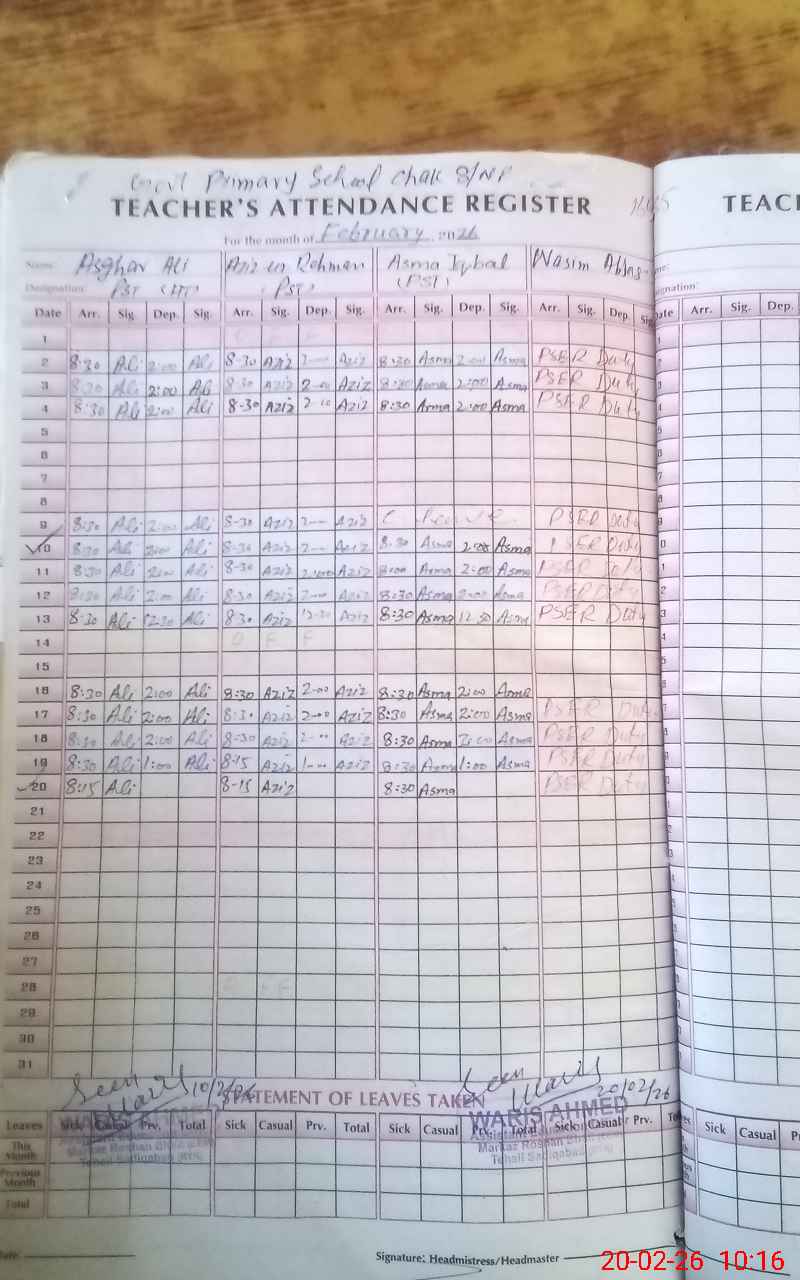 Govt Primary School Chak 8/NP
TEACHER'S ATTENDANCE REGISTER
TEAC
For the month of February 2026
Name: Asghar Ali Aziz ur Rehman Asma Iqbal Wasim Abbas
Designation: PST (HT) (PST) (PST)
Date Arr. Sig. Dep. Sig. Arr. Sig. Dep. Sig. Arr. Sig. Dep. Sig. Arr. Sig. Dep. Sig. Arr. Sig. Dep.
1
2 8:30 Ali 2:00 Ali 8-30 Aziz 2-00 Aziz 8:30 Asma 2:00 Asma PSER Duty
3 8:30 Ali 2:00 Ali 8-30 Aziz 2-00 Aziz 8:30 Asma 2:00 Asma PSER Duty
4 8:30 Ali 2:00 Ali 8-30 Aziz 2-00 Aziz 8:30 Asma 2:00 Asma PSER Duty
5
6
7
8
9 8:30 Ali 2:00 Ali 8-30 Aziz 2-00 Aziz C leave PSER Duty
10 8:30 Ali 2:00 Ali 8-30 Aziz 2-00 Aziz 8:30 Asma 2:00 Asma PSER Duty
11 8:30 Ali 2:00 Ali 8-30 Aziz 2:00 Aziz Asma 2:00 Asma PSER Duty
12 8:30 Ali 2:00 Ali 8-30 Aziz 2-00 Aziz 8:30 Asma 2:00 Asma PSER Duty
13 8:30 Ali 12:30 Ali 8-30 Aziz 12-30 Aziz 8:30 Asma 12:30 Asma PSER Duty
14 O F F
15
16 8:30 Ali 2:00 Ali 8:30 Aziz 2-00 Aziz 8:30 Asma 2:00 Asma
17 8:30 Ali 2:00 Ali 8:30 Aziz 2-00 Aziz 8:30 Asma 2:00 Asma PSER Duty
18 8:30 Ali 2:00 Ali 8-30 Aziz 2-00 Aziz 8:30 Asma 2:00 Asma PSER Duty
19 8:30 Ali 1:00 Ali 8-15 Aziz 1-00 Aziz 8:30 Asma 1:00 Asma PSER Duty
20 8:15 Ali 8-15 Aziz 8:30 Asma PSER Duty
21
22
23
24
25
26
27
28 O F F
29
30
31
Seen Waris 10/2/26 Seen Waris 20/02/26
STATEMENT OF LEAVES TAKEN
WARIS AHMED
Leaves Sick Casual Prv. Total Sick Casual Prv. Total Sick Casual Prv. Total Sick Casual Prv. Sick Casual
This Month
Markaz Roshan
Tehsil Sadiqabad
Previous Month
Total
Date: Signature: Headmistress/Headmaster
20-02-26 10:16